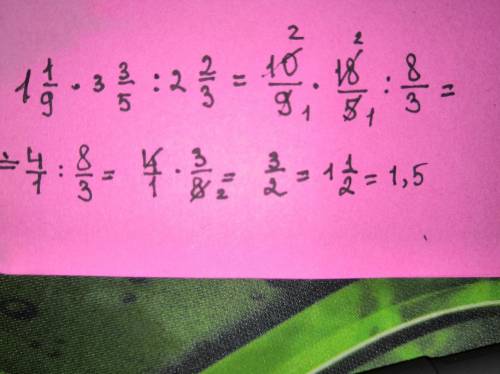 1 1/9 · 3 3/5 : 2 2/3 = 10/9 · 18/5 : 8/3 =
= 4/1 : 8/3 = 4/1 · 3/8 = 3/2 = 1 1/2 = 1,5